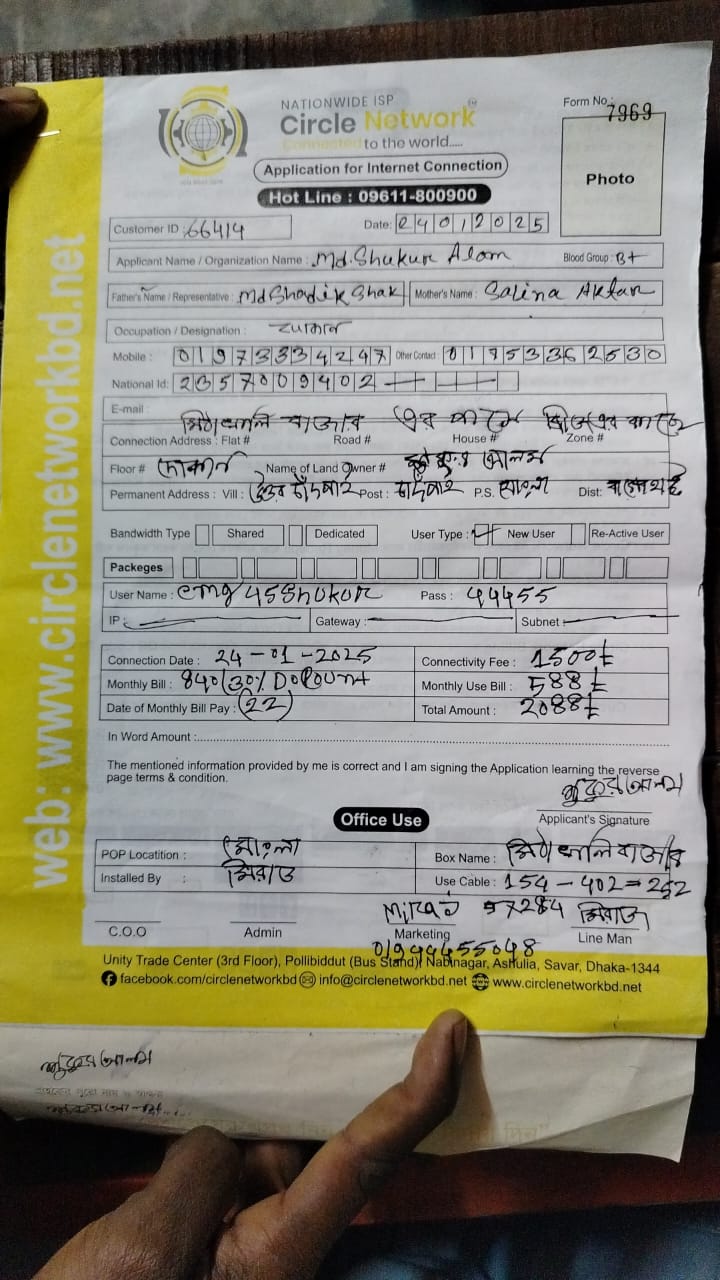 NATIONWIDE ISP
Circle Network
Connected to the world.....
Form No: 7969
Photo
Application for Internet Connection
Hot Line : 09611-800900
Customer ID : 66414
Date: 24012025
Applicant Name / Organization Name : Md. Shukur Alom Blood Group : B+
Father's Name / Representative : Md Shadik Shak Mother's Name : Salina Aktar
Occupation / Designation :
Mobile : 01973334247 Other Contact 01753362530
National Id: 2357009402
E-mail :
মিঠাখালি বাজার এর পাসে ব্রিজ এর কাছে
Connection Address : Flat # Road # House # Zone #
Floor # দোকান Name of Land Owner # শুকুর আলম
Permanent Address : Vill : উত্তর চাঁদপাই Post : চাঁদপাই P.S. মোংলা Dist: বাগেরহাট
Bandwidth Type Shared Dedicated User Type : New User Re-Active User
Packeges
User Name : cmg45Shukur Pass : 44455
IP : Gateway : Subnet
Connection Date : 24-01-2025 Connectivity Fee : 1500৳
Monthly Bill : 840(30% Monthly Use Bill : 588৳
Date of Monthly Bill Pay : (22) Total Amount : 2088৳
In Word Amount :
The mentioned information provided by me is correct and I am signing the Application learning the reverse
page terms & condition.
শুকুর আলম
Applicant's Signature
Office Use
POP Locatition : মোংলা Box Name : মিঠাখালি বাজার
Installed By : মিরাজ Use Cable : 154 - 402 = 252
Miraj 57284 মিরাজ
C.O.O Admin Marketing Line Man
01944455048
Unity Trade Center (3rd Floor), Pollibiddut (Bus Stand), Nabinagar, Ashulia, Savar, Dhaka-1344
facebook.com/circlenetworkbd info@circlenetworkbd.net www.circlenetworkbd.net
web: www.circlenetworkbd.net
শুকুর আলম
শুকুর আলম